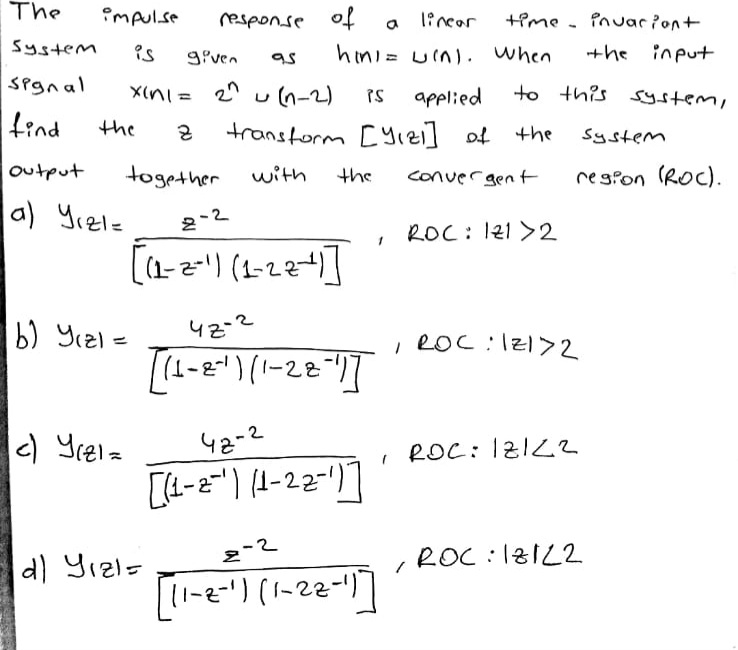 The impulse response of a linear time - invariant
system is given as h(n) = u(n). When the input
signal x(n) = 2ⁿ u (n-2) is applied to this system,
find the z transform [Y(z)] of the system
output together with the convergent region (ROC).
a) Y(z) = z⁻² / [(1-z⁻¹) (1-2z⁻¹)] , ROC : |z| >2
b) Y(z) = 4z⁻² / [(1-z⁻¹) (1-2z⁻¹)] , ROC : |z| >2
c) Y(z) = 4z⁻² / [(1-z⁻¹) (1-2z⁻¹)] , ROC : |z| <2
d) Y(z) = z⁻² / [(1-z⁻¹) (1-2z⁻¹)] , ROC : |z| <2